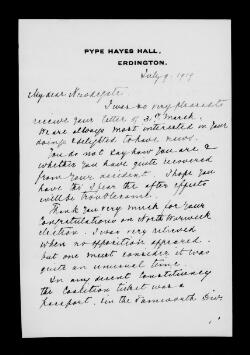 PYPE HAYES HALL,
ERDINGTON.
July 9. 1919
My dear Newdegate
I was so very pleased to
receive your letter of 31st March.
We are always most interested in your
doings & delighted to have news.
You do not say how you are &
whether you have quite recovered
from your accident. I hope you
have tho' I fear the after effects
will be troublesome.
Thank you very much for your
Congratulations on North Warwick
election. I was very relieved
when no opposition appeared.
but one must consider it was
quite an unusual time.
In any decent Constituency
the Coalition ticket was a
passport, (in the Tamworth Divn